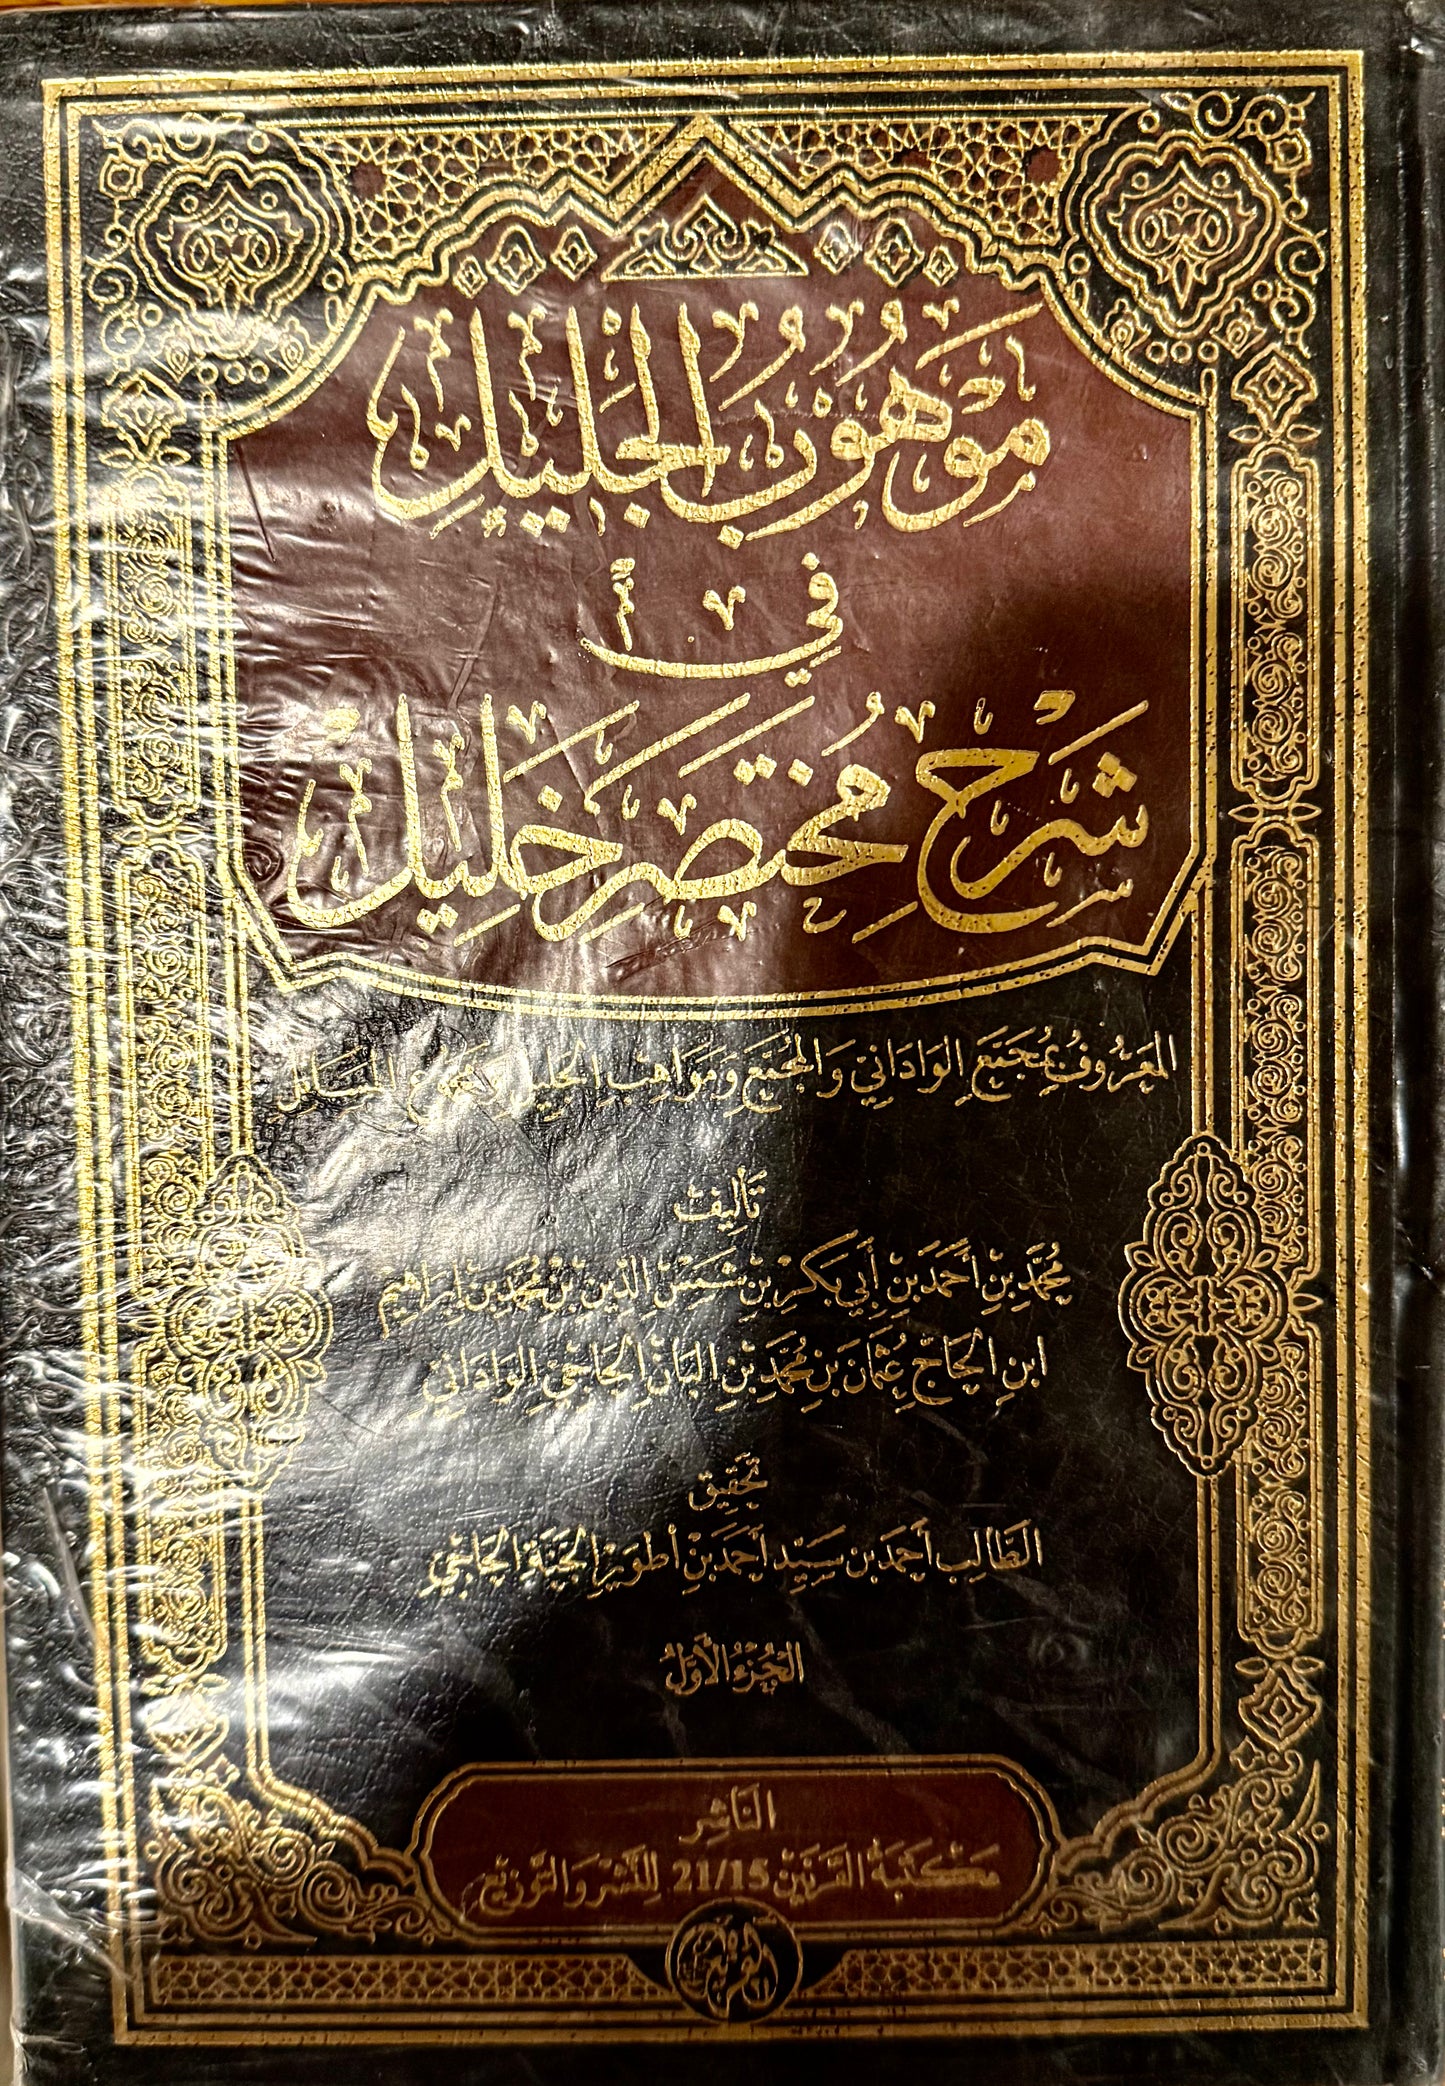 مَوْهُوبُ الْجَلِيلِ
فِي
شَرْحِ مُخْتَصَرِ خَلِيلٍ
المَعْرُوفُ بِمُجْتَمَعِ الوَادَانِي وَالمُجْتَمَعِ وَمَوَاهِبِ الجَلِيلِ المَسَائِل
تَأْلِيفُ
مُحَمَّدِ بْنِ أَحْمَدَ بْنِ أَبِي بَكْرِ بْنِ شَمْسِ الدِّينِ بْنِ مُحَمَّدِ بْنِ إِبْرَاهِيمَ
ابْنِ الحَاجِّ عُثْمَانَ بْنِ مُحَمَّدِ بْنِ البَانْ الحَاجِيِّ الوَادَانِيِّ
تَحْقِيق
الطَّالِب أَحْمَد بن سَيِّد أَحْمَد بْن أطْوَيْر الجَنَّة الحَاجِيِّ
الجُزْءُ الأَوَّلُ
النَّاشِر
مَكْتَبَةُ القَرْنَيْن 21/15 لِلنَّشْرِ وَالتَّوْزِيع